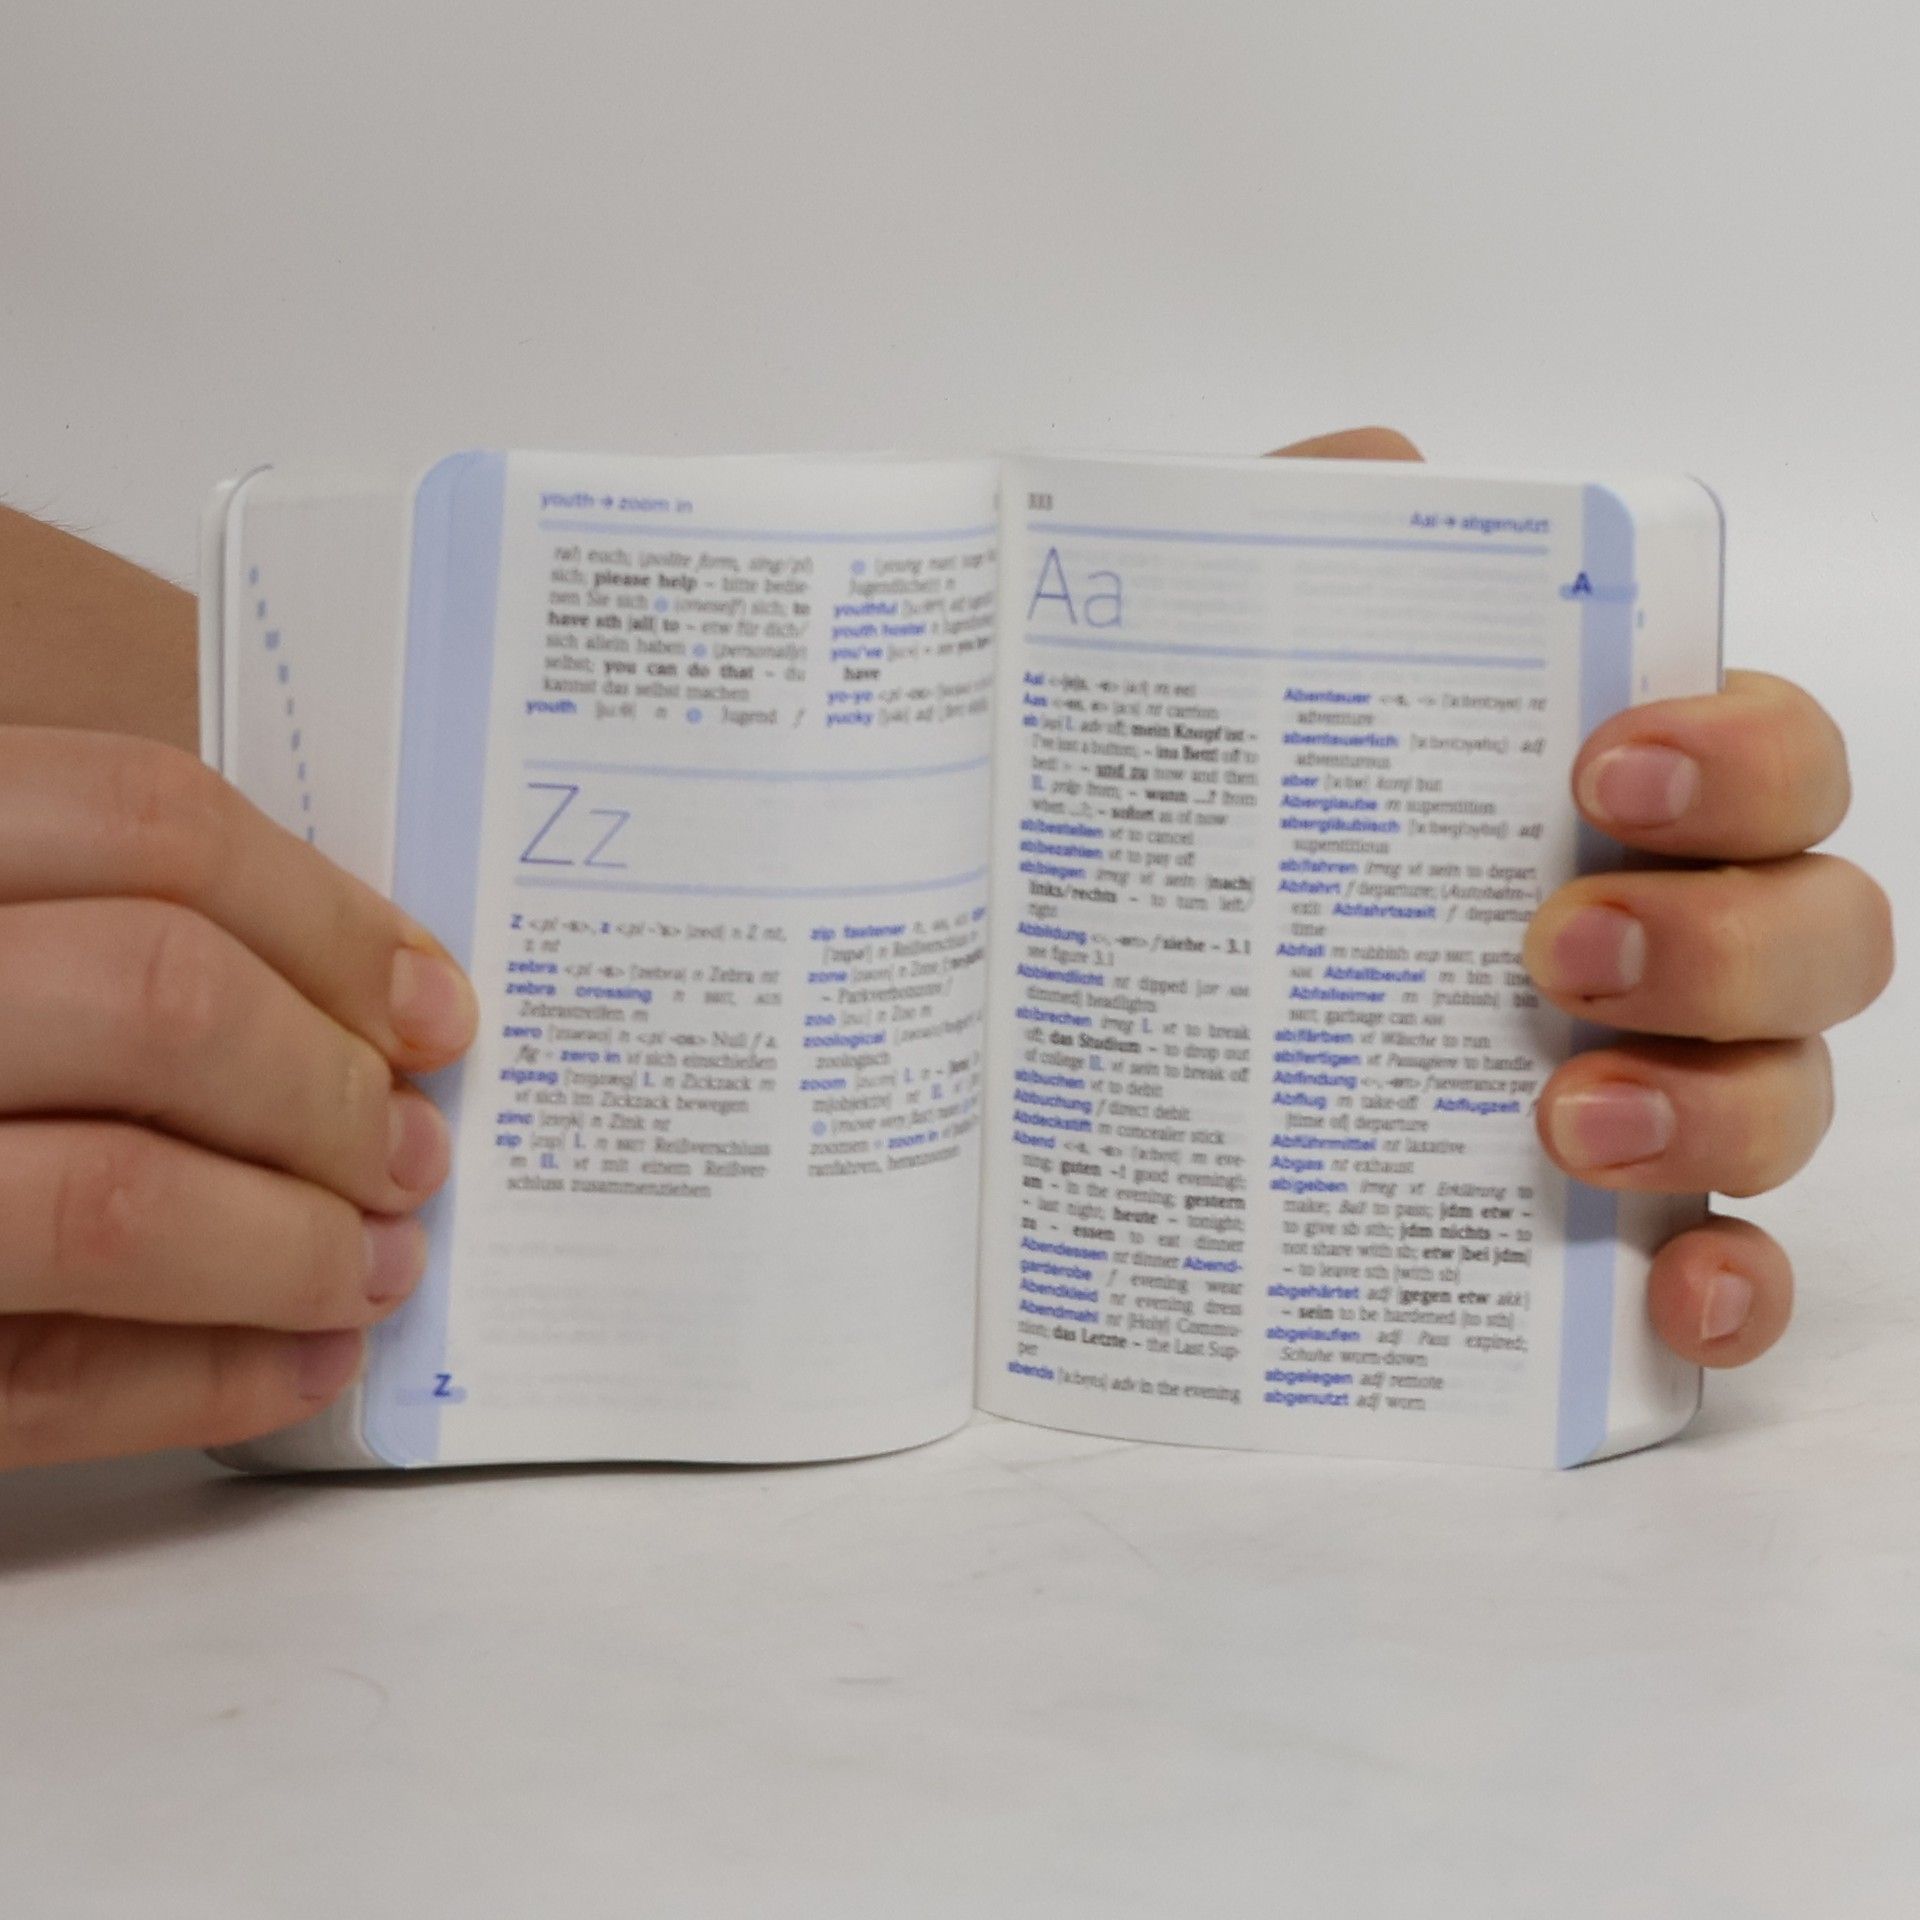 youth → zoom in
rat) euch; (polite form, sing/pl)
sich; please help ~ bitte bedie-
nen Sie sich (oneself) sich; to
have sth [all] to ~ etw für dich/
sich allein haben (personally)
selbst; you can do that ~ du
kannst das selbst machen
youth n Jugend f
Jugendliche(r) n
youthful
youth hostel n
you've
have
yo-yo
yucky adj
Zz
Z <pl -s>, z <pl -'s> [zed] n Z nt,
z nt
zebra <pl -s> ['zebra] n Zebra nt
zebra crossing n BRIT, AUS
Zebrastreifen m
zero <pl -os> Null f a.
fig ◦ zero in vi sich einschießen
zigzag ['zigzæg] I. n Zickzack m
vi sich im Zickzack bewegen
zinc [zɪŋk] n Zink nt
zip [zɪp] I. n BRIT Reißverschluss
m II. vt mit einem Reißver-
schluss zusammenziehen
zip fastener n
n Reißverschluss
zone n Zone
~ Parkverbotszone
zoo [zu:] n Zoo m
zoological
zoologisch
zoom I. n
(move very fast)
zoomen ◦ zoom in
ranfahren, heranzoomen
Z
333
Aal → abgenutzt
Aa
A
Aal <-[e]s, -e> [a:l] m eel
Aas <-es, -e> [a:s] nt carrion
ab [ap] I. adv off; mein Knopf ist ~
I've lost a button; ~ ins Bett! off to
bed! ◦ ~ und zu now and then
II. präp from; ~ wann ...? from
when ...?; ~ sofort as of now
ab|bestellen vt to cancel
ab|bezahlen vt to pay off
ab|biegen irreg vi sein [nach]
links/rechts ~ to turn left/
right
Abbildung <-, -en> f siehe ~ 3.1
see figure 3.1
Abblendlicht nt dipped [or AM
dimmed] headlights
ab|brechen irreg I. vt to break
off; das Studium ~ to drop out
of college II. vi sein to break off
ab|buchen vt to debit
Abbuchung f direct debit
Abdeckstift m concealer stick
Abend <-s, -e> [a:bnt] m eve-
ning; guten ~! good evening!;
am ~ in the evening; gestern
~ last night; heute ~ tonight;
zu ~ essen to eat dinner
Abendessen nt dinner Abend-
garderobe f evening wear
Abendkleid nt evening dress
Abendmahl nt [Holy] Commu-
nion; das Letzte ~ the Last Sup-
per
abends [a:bnts] adv in the evening
Abenteuer <-s, -> nt
adventure
abenteuerlich adj
adventurous
aber [a:bɐ] konj but
Aberglaube m superstition
abergläubisch adj
superstitious
ab|fahren irreg vi sein to depart
Abfahrt f departure; (Autobahn~)
exit Abfahrtszeit f departure
time
Abfall m rubbish esp BRIT, garbage
AM Abfallbeutel m bin liner
Abfalleimer m [rubbish] bin
BRIT, garbage can AM
ab|färben vi Wäsche to run
ab|fertigen vt Passagiere to handle
Abfindung <-, -en> f severance pay
Abflug m take-off Abflugzeit f
[time of] departure
Abführmittel nt laxative
Abgas nt exhaust
ab|geben irreg vt Erklärung to
make; Ball to pass; jdm etw ~
to give sb sth; jdm nichts ~ to
not share with sb; etw [bei jdm]
~ to leave sth [with sb]
abgehärtet adj [gegen etw akk]
~ sein to be hardened [to sth]
abgelaufen adj Pass expired;
Schuhe worn-down
abgelegen adj remote
abgenutzt adj worn